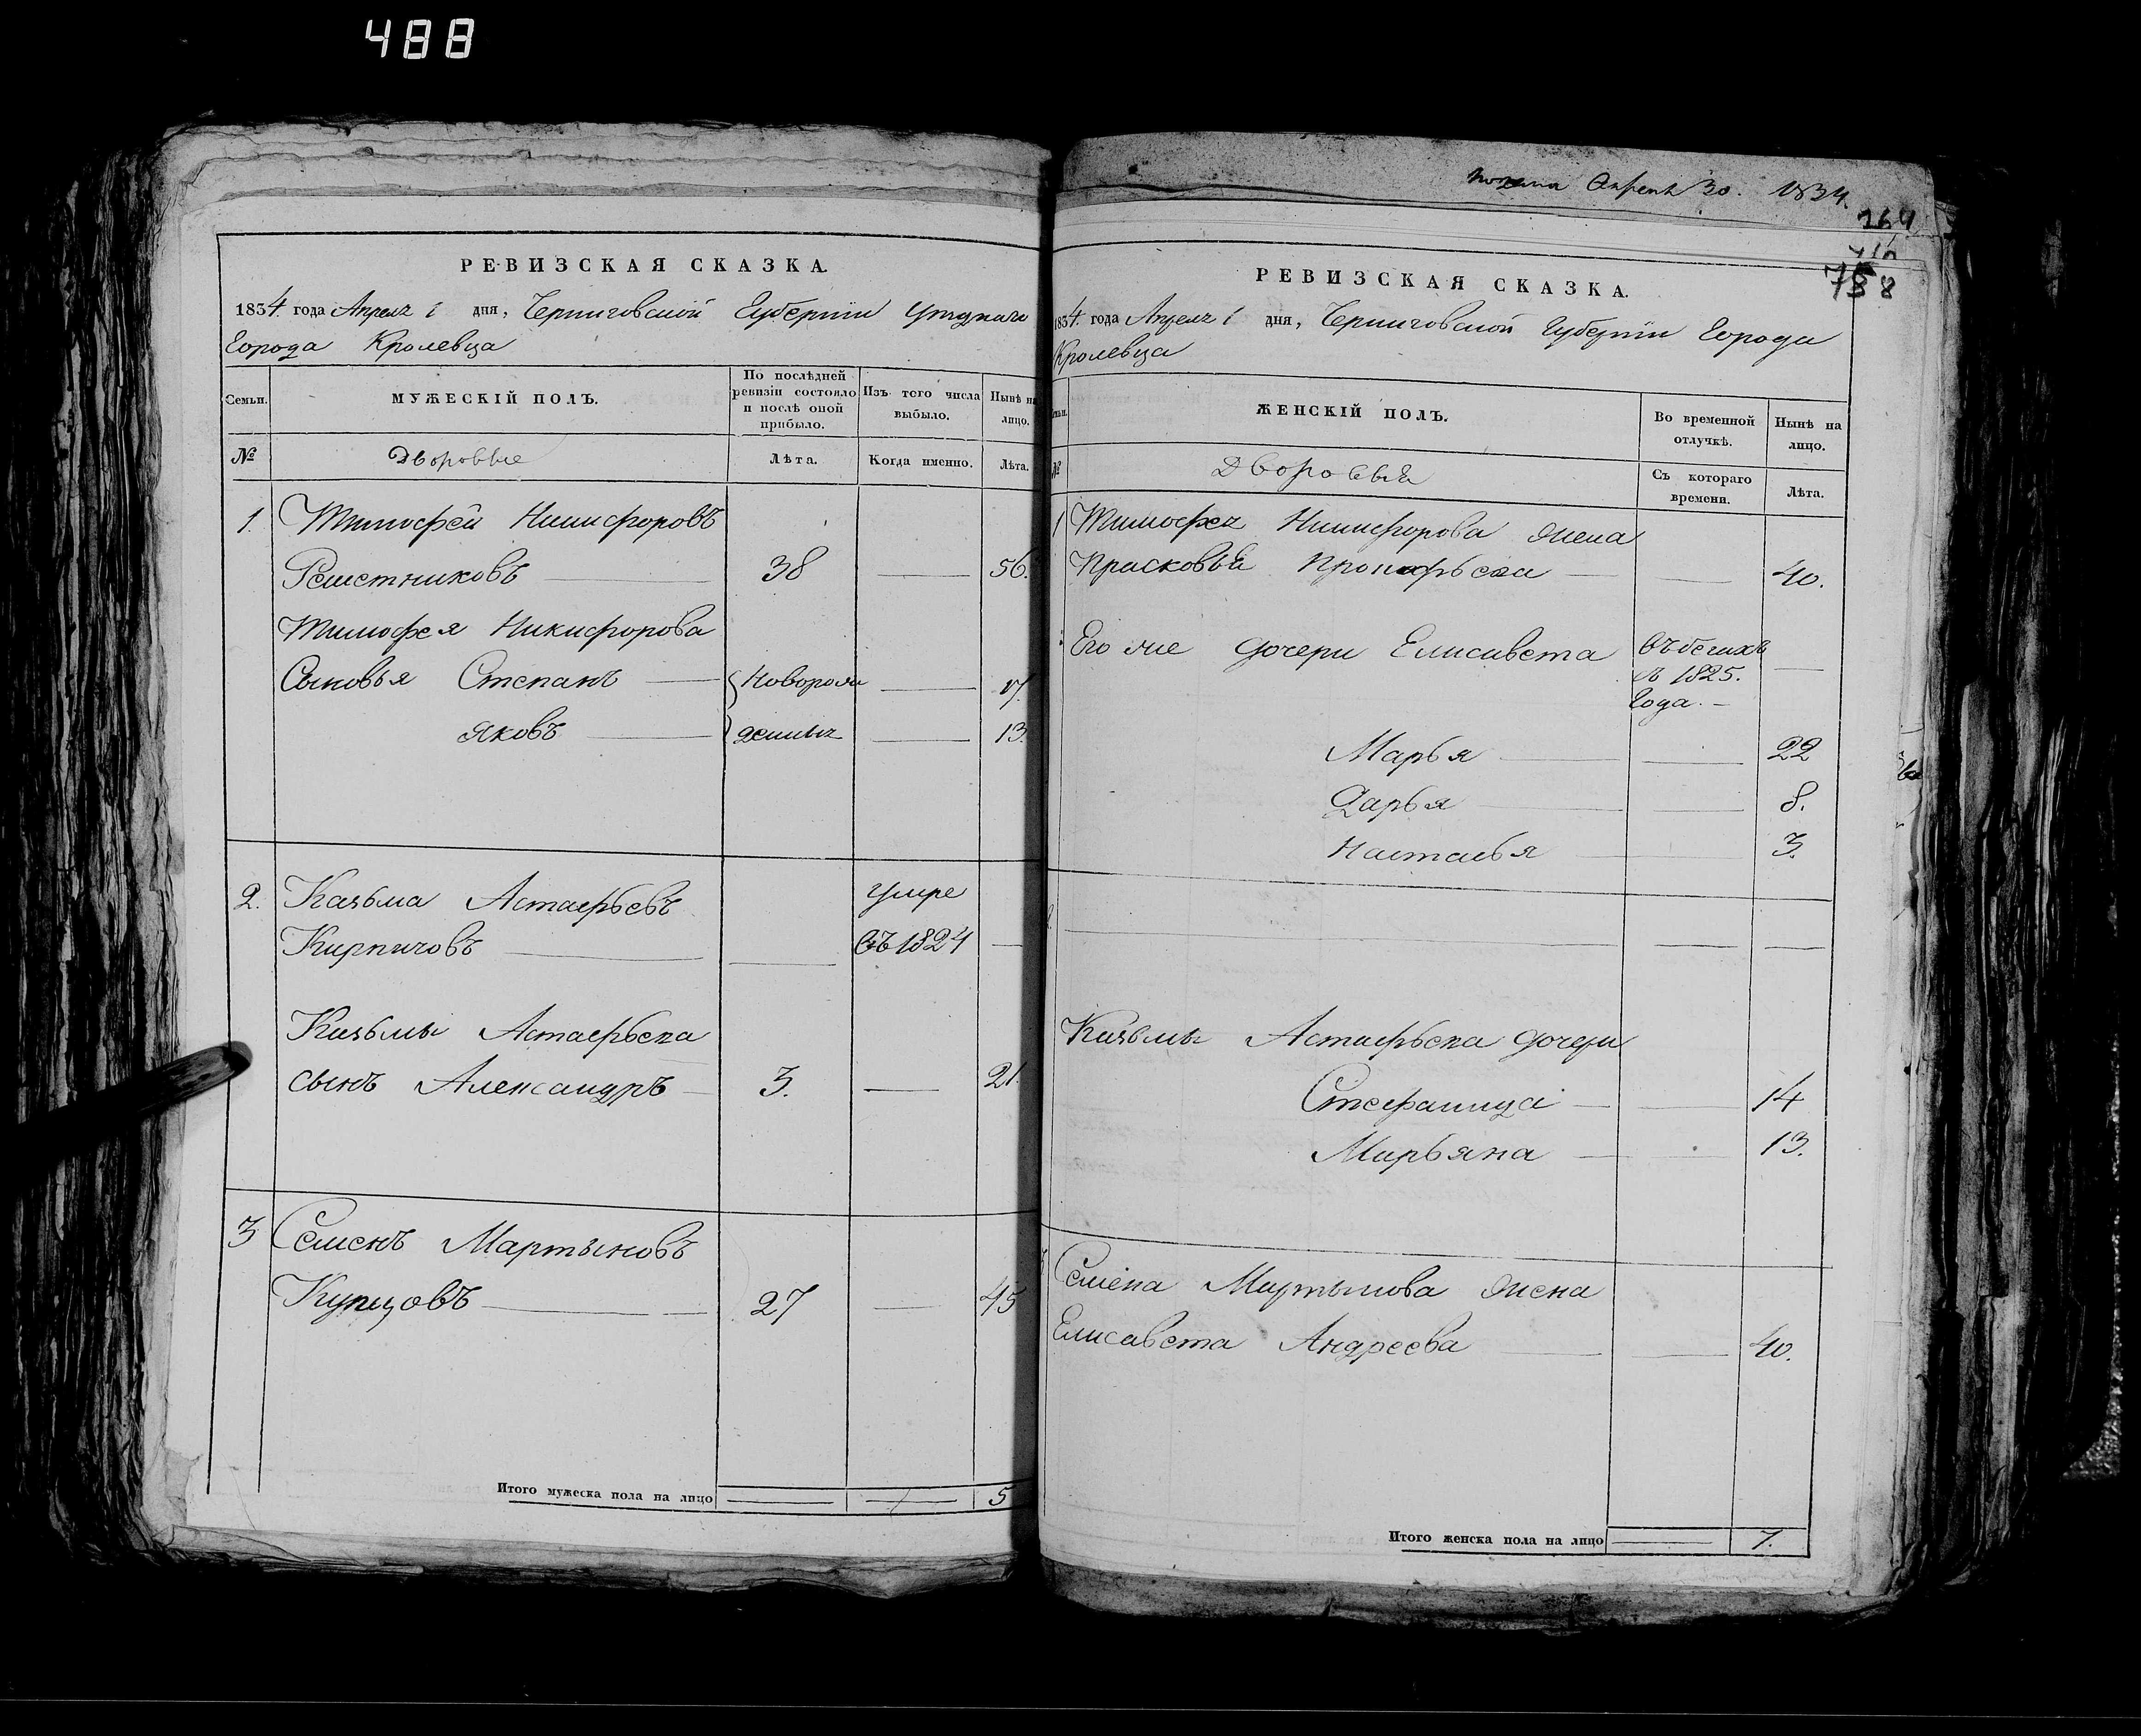 488
РЕВИЗСКАЯ СКАЗКА.
1834 года Апреля 1 дня, Черниговской Губернїи
Города Кролевца
Семьи.
МУЖЕСКІЙ ПОЛЪ.
По послѣдней ревизіи состояло и послѣ оной прибыло.
Изъ того числа выбыло.
Нынѣ на лицо.
№
Дворовые
Лѣта.
Когда именно.
Лѣта.
1. Тимофей Никифоровъ
Решетниковъ 38 56.
Тимофея Никифорова
Сыновья Степанъ Новорож 17.
Яковъ денные 13.
2. Казьма Астафьевъ умре
Кирпичовъ въ 1824
Казьмы Астафьева
сынъ Александръ 3. 21.
3 Семенъ Мартыновъ
Купцовъ 27 45
Итого мужеска пола на лицо 1 5
Апреля 30. 1834.
264
758
РЕВИЗСКАЯ СКАЗКА.
1834 года Апреля 1 дня, Черниговской Губернїи Города
Кролевца
ЖЕНСКІЙ ПОЛЪ.
Во временной отлучкѣ.
Нынѣ на лицо.
№
Дворовыя
Съ котораго времени.
Лѣта.
1 Тимофея Никифорова жена
Прасковья Прокофьева 40.
Его же дочери Елисавета въ бегахъ
съ 1825.
Года.
Марья 22
Дарья 8.
Наталья 3.
Казьмы Астафьева дочери
Стефанида 14
Марьяна 13.
Семена Мартынова жена
Елисавета Андреева 40.
Итого женска пола на лицо 7.